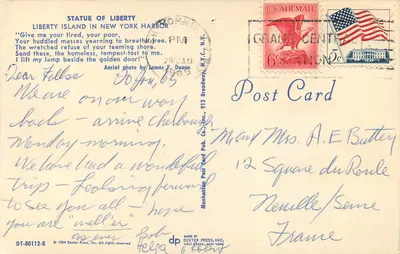 STATUE OF LIBERTY
LIBERTY ISLAND IN NEW YORK HARBOR
"Give me your tired, your poor,
Your huddled masses yearning to breathe free,
The wretched refuse of your teeming shore.
Send these, the homeless, tempest-tost to me.
I lift my lamp beside the golden door!"
Aerial photo by James F. Deane
Dear Folks
We are on our way
back - arrive Cherbourg
Monday morning.
We have had a wonderful
trip - Looking forward
to see you all - hope
you are "well'er"
as ever Bob
Helga
DT-80112-B
© 1964 Dexter Press, Inc.
MADE BY
dp DEXTER PRESS, INC.
WEST NYACK, NEW YORK
Manhattan Post Card Pub. Co., Inc., 913 Broadway, N.Y.C., N.Y.
PM
1965
U.S. AIR MAIL
6c
GRAND CENT
Post Card
Mr and Mrs. A E Buttery
12 Square du Roule
Neuille/Seine
France